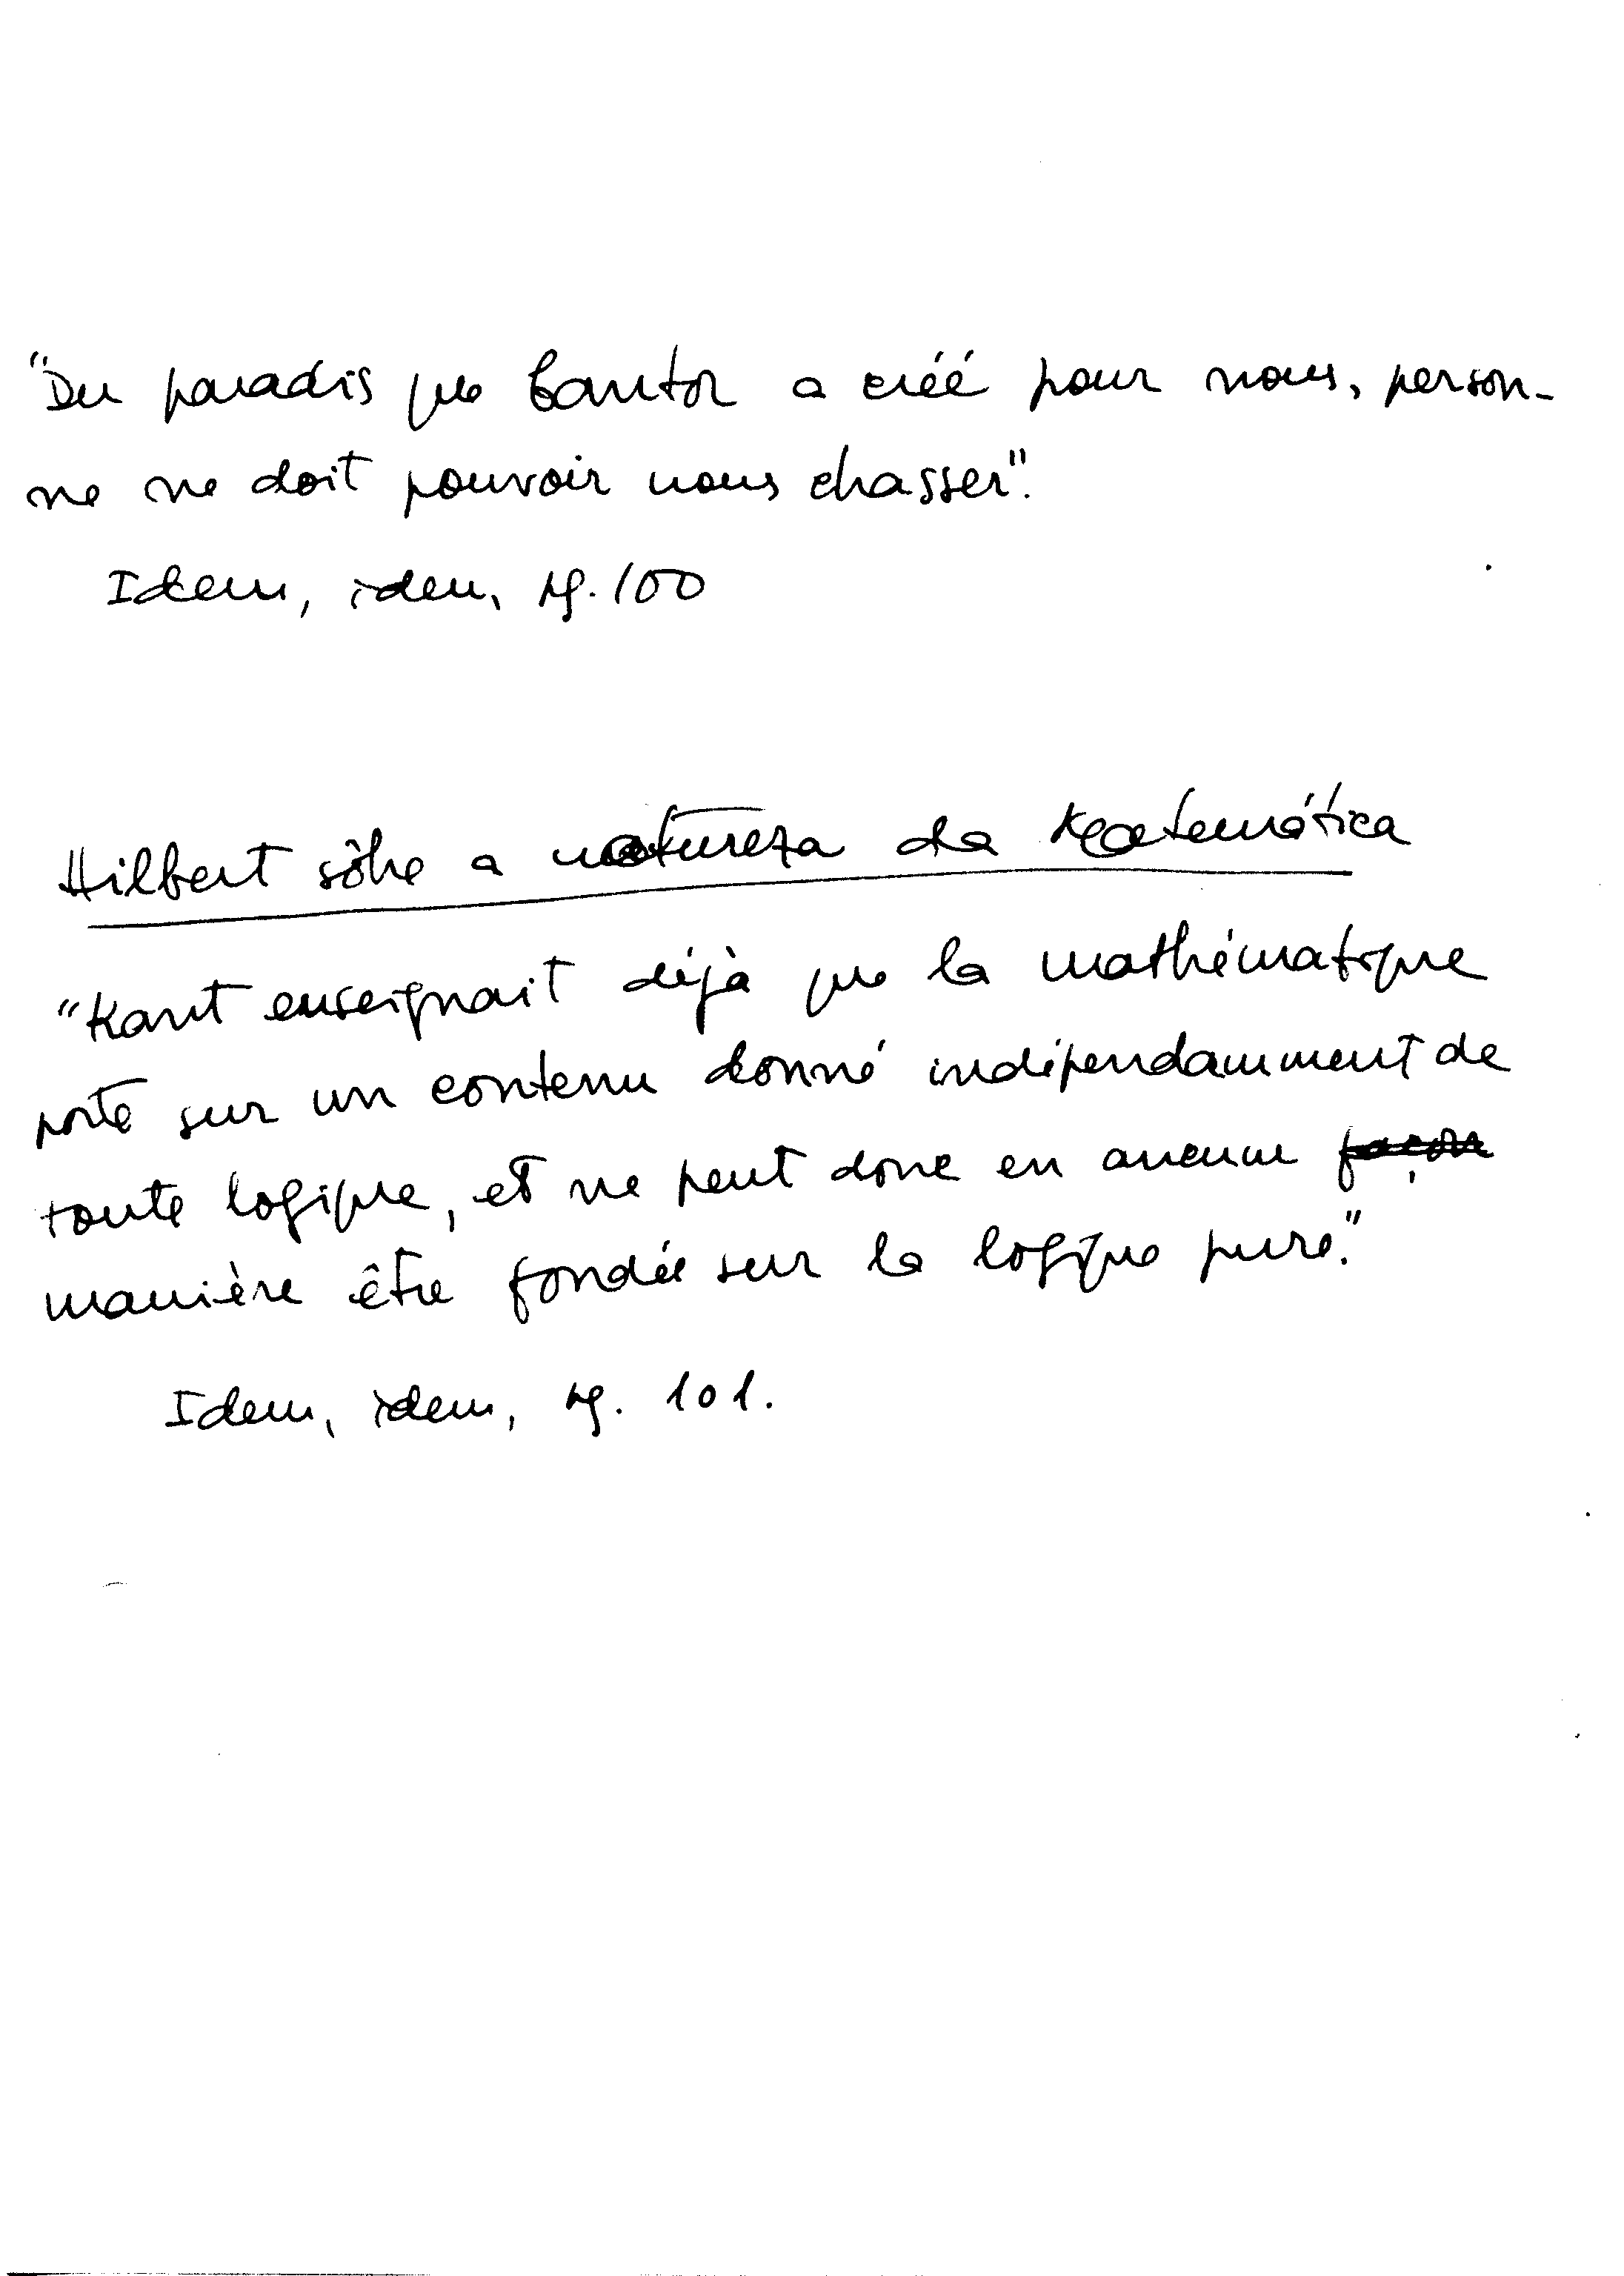 "Du paradis que Cantor a créé pour nous, person-
ne ne doit pouvoir nous chasser".
Idem, idem, pg. 100
Hilbert sôbre a natureza da Matemática
"Kant enseignait déjà que la mathématique
porte sur un contenu donné indépendamment de
toute logique, et ne peut donc en aucune façon
manière être fondée sur la logique pure."
Idem, idem, pg. 101.